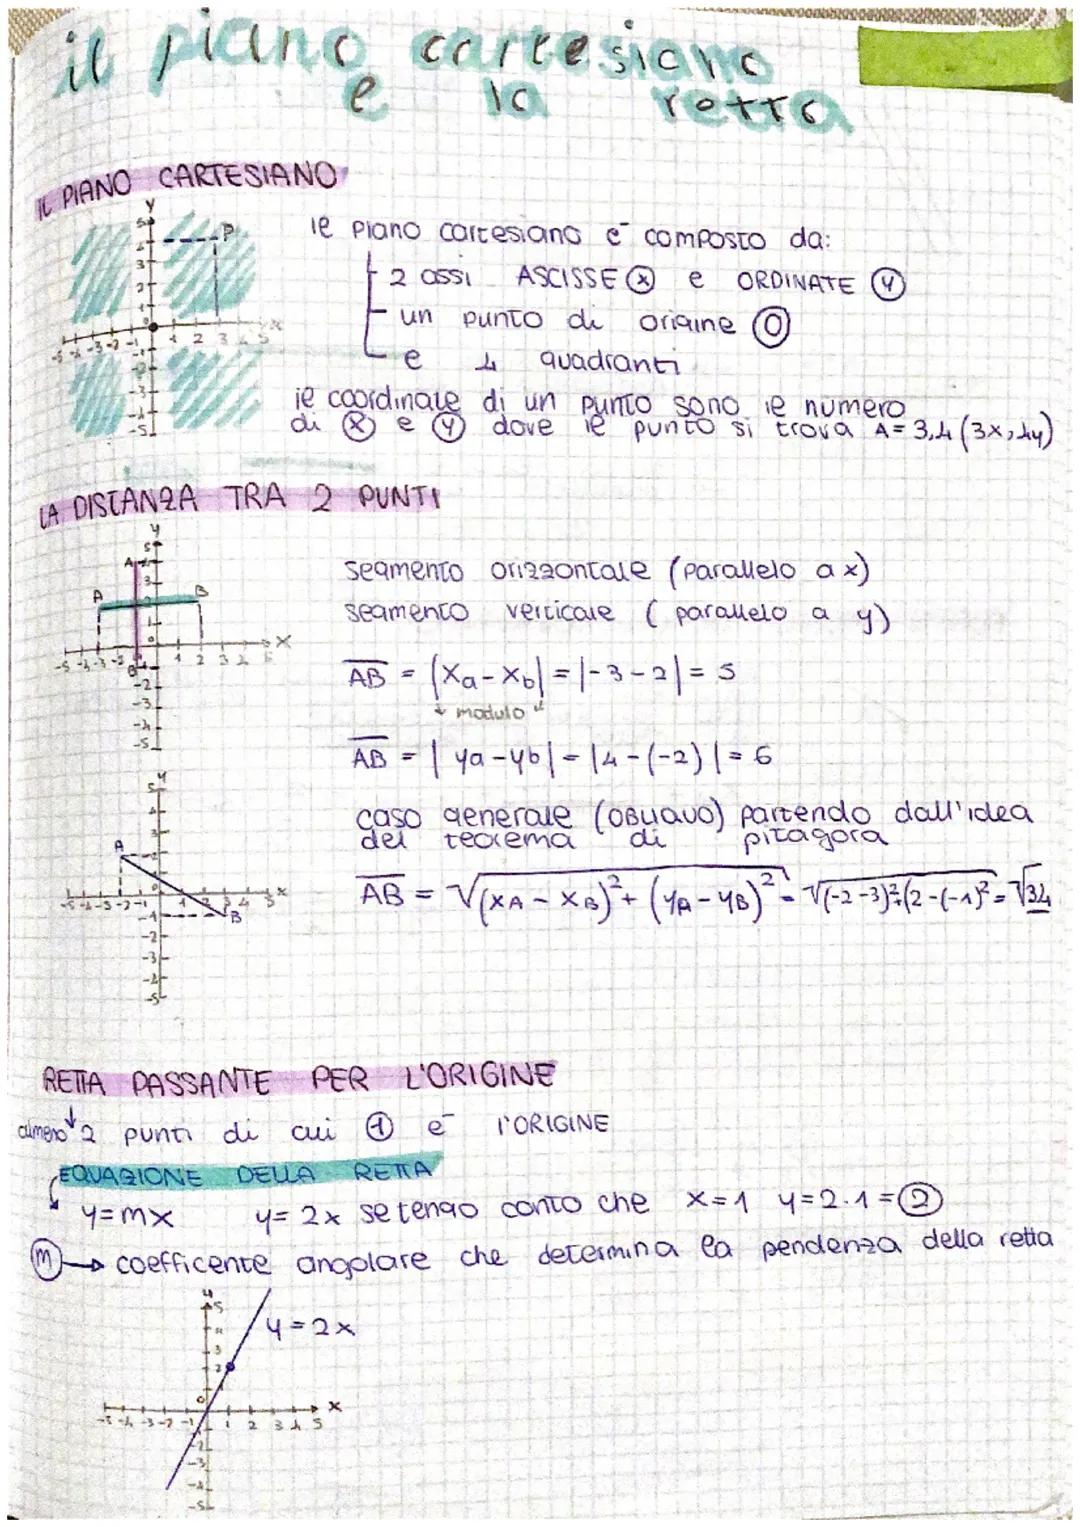 il piano cartesiano
e la retta
IL PIANO CARTESIANO
ie piano cartesiano e composto da:
2 assi ASCISSE (x) e ORDINATE (y)
un punto di origine (O)
e 4 quadranti
ie coordinate di un punto sono ie numero
di (x) e (y) dove ie punto si trova A=3,4 (3x,4y)
y
P
x
-5 -4 -3 -2 -1 1 2 3 4 5
LA DISTANZA TRA 2 PUNTI
segmento orizzontale (parallelo a x)
segmento verticale (parallelo a y)
AB = |Xa-Xb| = |-3-2| = 5
modulo
AB = |ya-yb| = |4-(-2)| = 6
y
A
A B
x
-5 -4 -3 -2 1 2 3 4 5
B
caso generale (obliquo) partendo dall'idea
del teorema di pitagora
AB = √(xA-xB)²+(yA-yB)² = √(-2-3)²+(2-(-1)² = √34
y
A
x
B
RETTA PASSANTE PER L'ORIGINE
almeno 2 punti di cui (1) e l'ORIGINE
EQUAZIONE DELLA RETTA
y=mx y=2x se tengo conto che x=1 y=2.1=(2)
(m) → coefficente angolare che determina la pendenza della retta
y
y=2x
x
-5 -4 -3 -2 -1 1 2 3 4 5